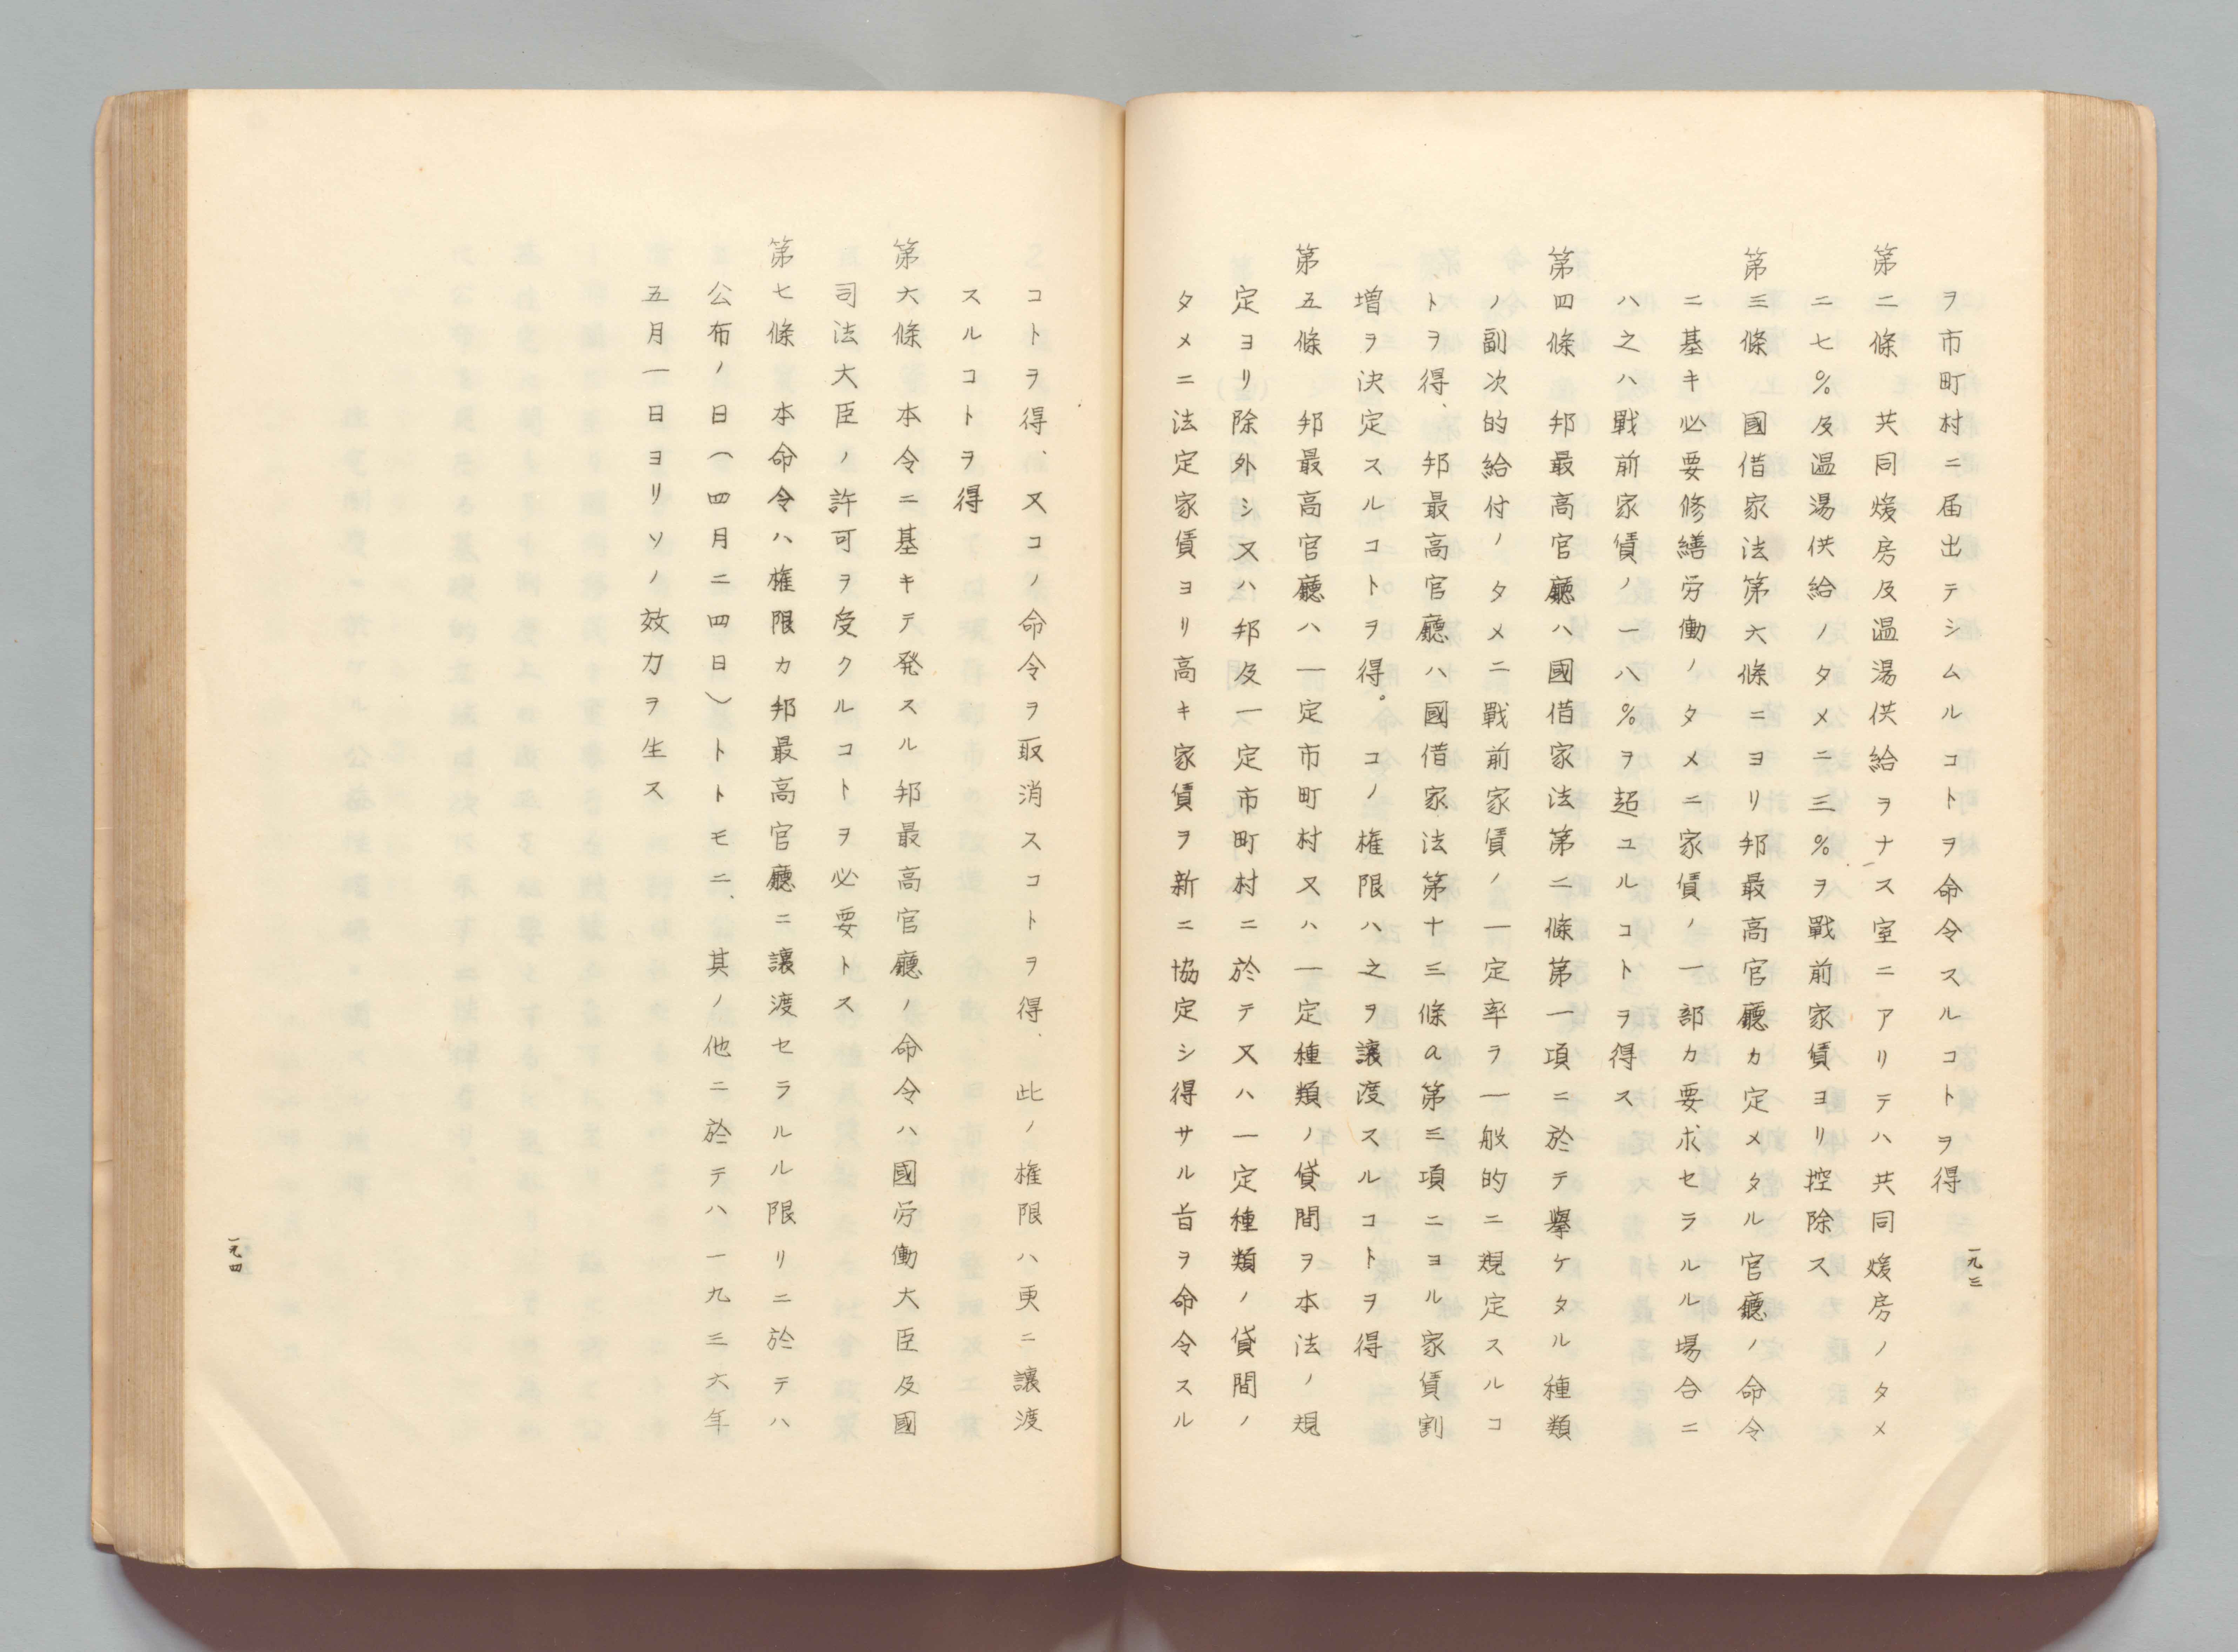 ヲ市町村ニ届出テシムルコトヲ命令スルコトヲ得
第二條　共同煖房及温湯供給ヲナス室ニアリテハ共同煖房ノタメ
ニ七％及温湯供給ノタメニ三％ヲ戰前家賃ヨリ控除ス
第三條　國借家法第六條ニヨリ邦最高官廳カ定メタル官廳ノ命令
ニ基キ必要修繕労働ノタメニ家賃ノ一部カ要求セラルル場合ニ
ハ之ハ戰前家賃ノ一八％ヲ超ユルコトヲ得ス
第四條　邦最高官廳ハ國借家法第二條第一項ニ於テ擧ケタル種類
ノ副次的給付ノタメニ戰前家賃ノ一定率ヲ一般的ニ規定スルコ
トヲ得、邦最高官廳ハ國借家法第十三條a第三項ニヨル家賃割
増ヲ決定スルコトヲ得。コノ権限ハ之ヲ讓渡スルコトヲ得
第五條　邦最高官廳ハ一定市町村又ハ一定種類ノ貸間ヲ本法ノ規
定ヨリ除外シ又ハ邦及一定市町村ニ於テ又ハ一定種類ノ貸間ノ
タメニ法定家賃ヨリ高キ家賃ヲ新ニ協定シ得サル旨ヲ命令スル
一九三
コトヲ得、又コノ命令ヲ取消スコトヲ得、此ノ権限ハ更ニ讓渡
スルコトヲ得
第六條　本令ニ基キテ発スル邦最高官廳ノ命令ハ國労働大臣及國
司法大臣ノ許可ヲ受クルコトヲ必要トス
第七條　本命令ハ権限カ邦最高官廳ニ讓渡セラルル限リニ於テハ
公布ノ日（四月二四日）トトモニ、其ノ他ニ於テハ一九三六年
五月一日ヨリソノ效力ヲ生ス
一九四